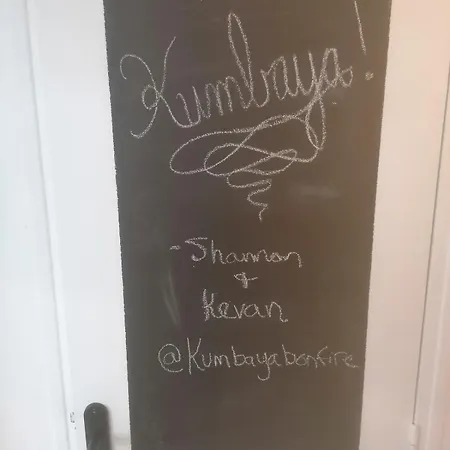 Kumbaya!
-Shannon
+
Kevan
@Kumbayabonfire